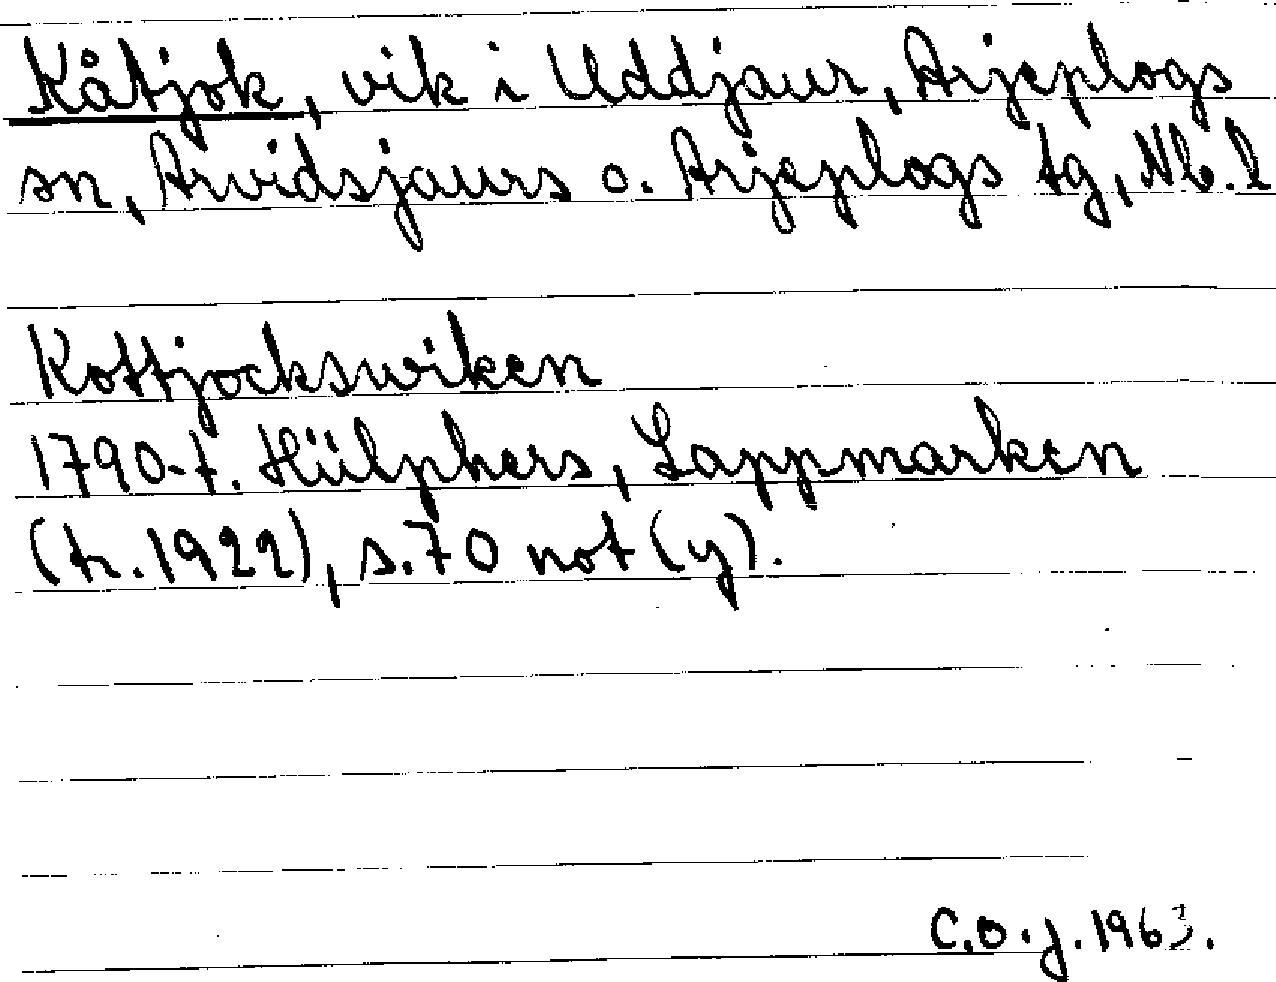 Kåtjok, vik i Uddjaur, Arjeplogs
sn, Arvidsjaurs o. Arjeplogs tg, Nb. l
Kottjockswiken
1790-t. Hülphers, Lappmarken
(tr. 1922), s. 70 not (y).
C.O.J. 1963.